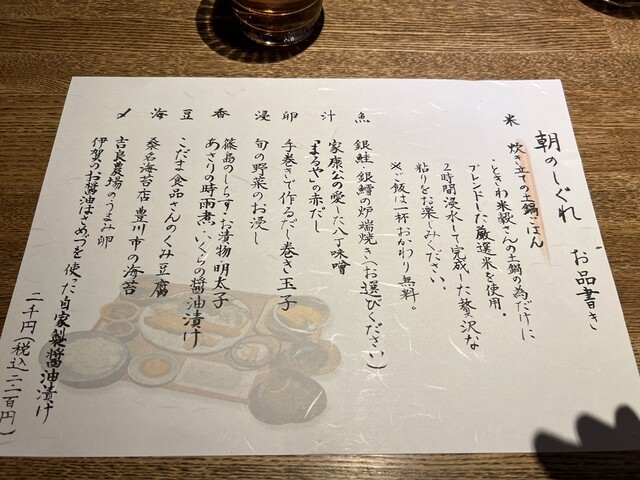 朝のしぐれ お品書き
米 炊き立ての土鍋ごはん
ときわ米穀さんの土鍋の為だけに
ブレンドした厳選米を使用。
2時間浸水して完成した贅沢な
粘りをお楽しみください。
※ご飯は一杯おかわり無料。
魚 銀鮭 銀鱈の炉端焼き(お選びください)
汁 家康公の愛した八丁味噌
「まるや」の赤だし
卵 手巻きで作るだし巻き玉子
浸 旬の野菜のお浸し
香 篠島のしらす・お漬物 明太子
あさりの時雨煮・いくらの醤油漬け
豆 こだま食品さんのくみ豆腐
海 桑名海苔店 豊川市の海苔
〆 吉良農場のうまみ卵
伊賀のお醤油はさめづを使った自家製醤油漬け
二千円(税込二二百円)